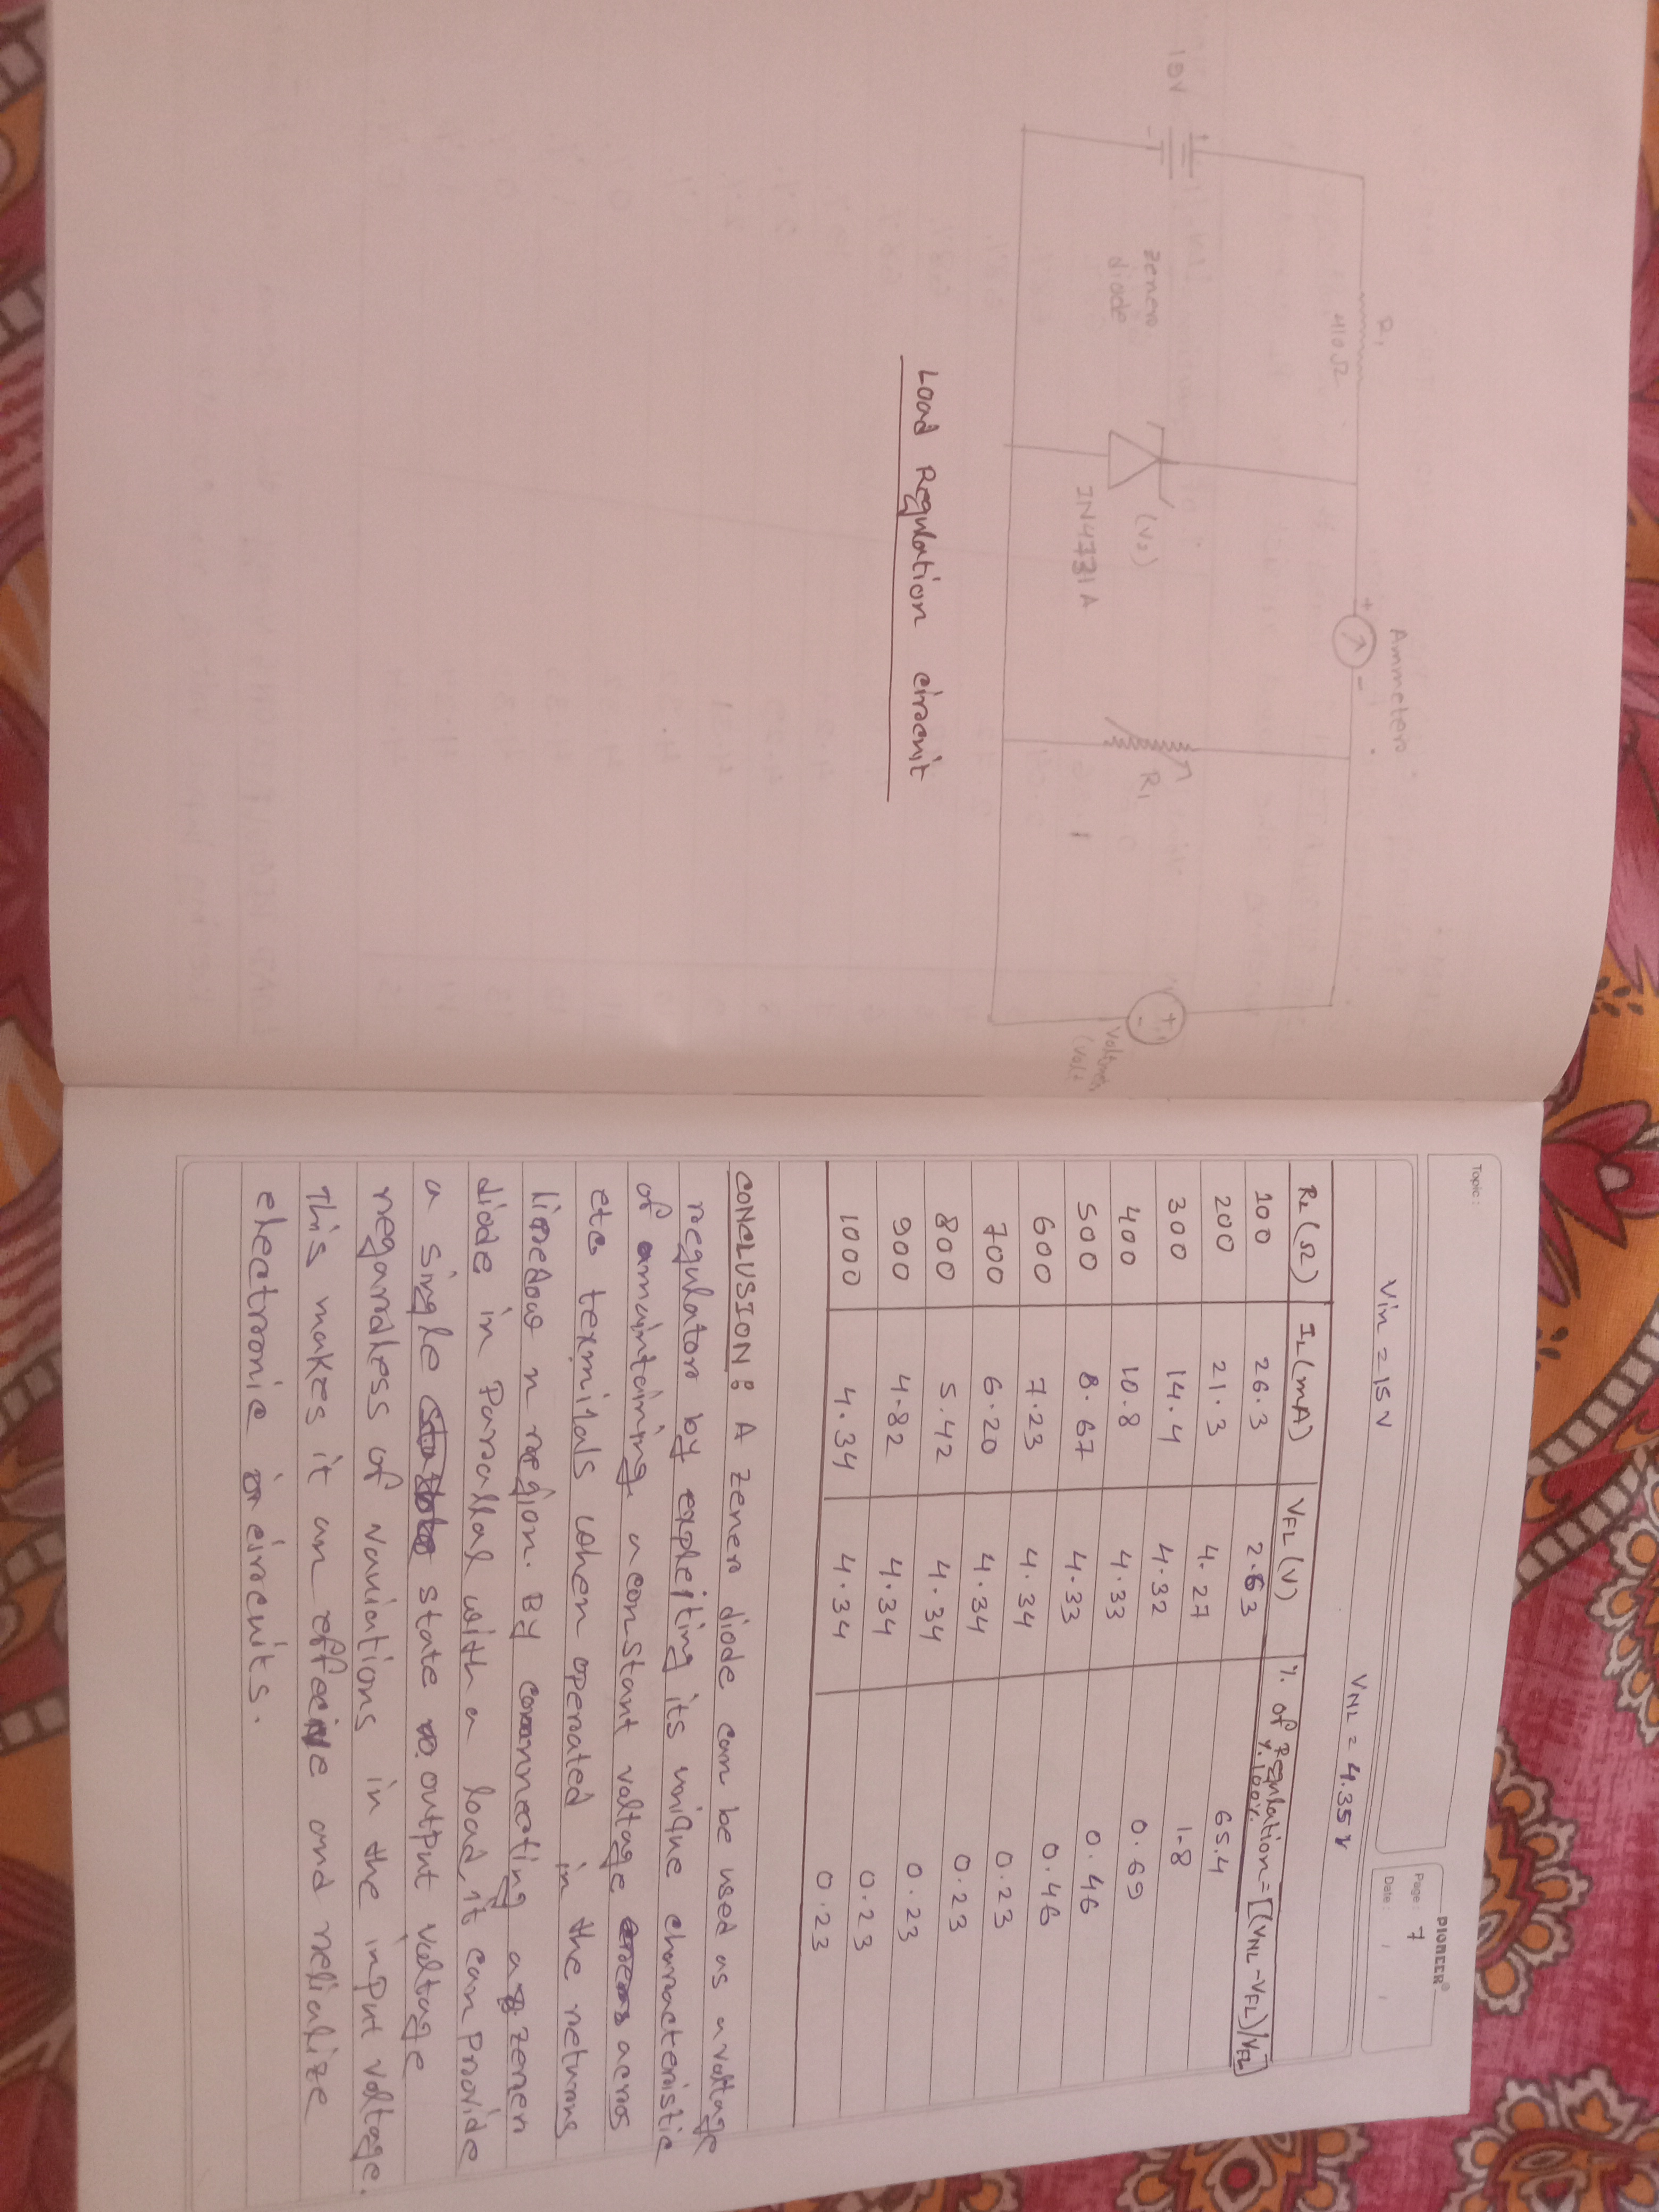 10V
R1
410Ω
Zenero
diode
(Vz)
IN4731A
Ammetero
+
-
R1
+
-
Voltmete
(volt
Load Regulation circuit
PIONEER
Topic:
Page: 7
Date:
Vin = 15V
VNL = 4.35V
RL(Ω) IL(mA) VFL(V) % of Regulation = [(VNL - VFL)/VFL]
%.100%
100 26.3 2.63 65.4
200 21.3 4.27 1.8
300 14.4 4.32 0.69
400 10.8 4.33 0.46
500 8.67 4.33 0.46
600 7.23 4.34 0.23
700 6.20 4.34 0.23
800 5.42 4.34 0.23
900 4.82 4.34 0.23
1000 4.34 4.34 0.23
CONCLUSION: A zener diode can be used as a voltage
regulator by expleiting its unique characteristic
of amaintaining a constant voltage acros
etc texmitals when operated in the returns
n region. By connecting a zener
diode in Parallal with a load, it can provide
a single state output voltage
regardless of variations in the input voltage.
This makes it an effecive and reliablize
electronic circuits.